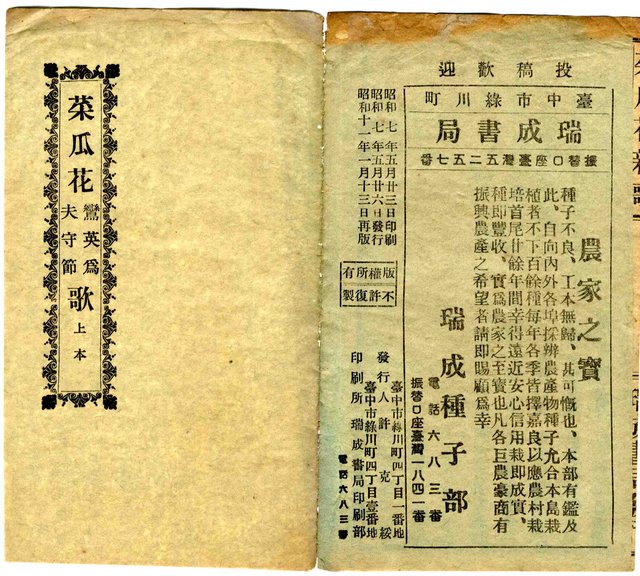 投稿歡迎
臺中市綠川町
瑞成書局
振替口座臺灣五二五七番
農家之寶
種子不良、工本無歸、甚可慨也、本部有鑑及
此、自向內外各埠採辦農產物種子尤合本島栽
植者不下百餘種每年各季皆擇嘉良以應農村栽
培首尾廿餘年間幸得遠近安心信用栽即成實、
種即豐收、實爲農家之至寶也凡各巨農豪商有
振興農產之希望者請即賜顧爲幸
瑞成種子部
電話六八三番
振替口座臺灣一八四一番
昭和七年五月廿三日印刷
昭和七年五月廿六日發行
昭和十一年一月十三日再版
版權所有
不許復製
臺中市綠川町四丁目一番地
發行人 許克綏
臺中市綠川町四丁目壹番地
印刷所 瑞成書局印刷部
電話六八三番
菜瓜花鸞英爲夫守節歌上本